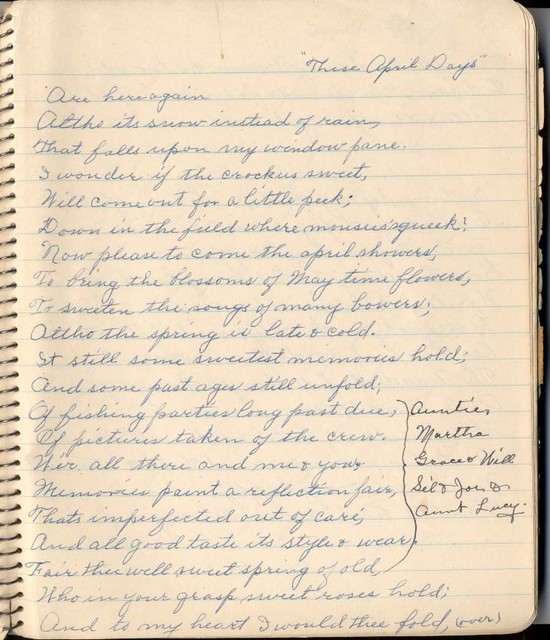 "These April Days"
Are here again
Altho its snow instead of rain,
That falls upon my window pane.
I wonder if the crockus sweet,
Will come out for a little peek;
Down in the field where mousie's squeek!
Now please to come the april showers,
To bring the blossoms of May time flowers,
To sweeten the songs of many bowers;
Altho the spring is late & cold.
It still some sweetest memories hold;
And some past ages still unfold;
Of fishing parties long past due, Auntie,
Of pictures taken of the crew. Martha
We'r all there and me & you. Grace & Will
Memories paint a reflection fair, Sil & Joe &
Thats imperfected out of care, Aunt Lucy.
And all good taste its style & wear.
Fair thee well sweet spring of old,
Who in your grasp sweet roses hold;
And to my heart I would thee fold, (over)